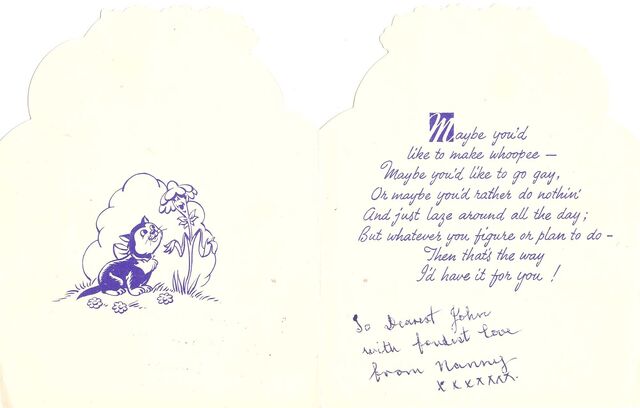 Maybe you'd
like to make whoopee —
Maybe you'd like to go gay,
Or maybe you'd rather do nothin'
And just laze around all the day;
But whatever you figure or plan to do —
Then that's the way
I'd have it for you !
To Dearest John
with fondest love
from Nanny
xxxxxxx.